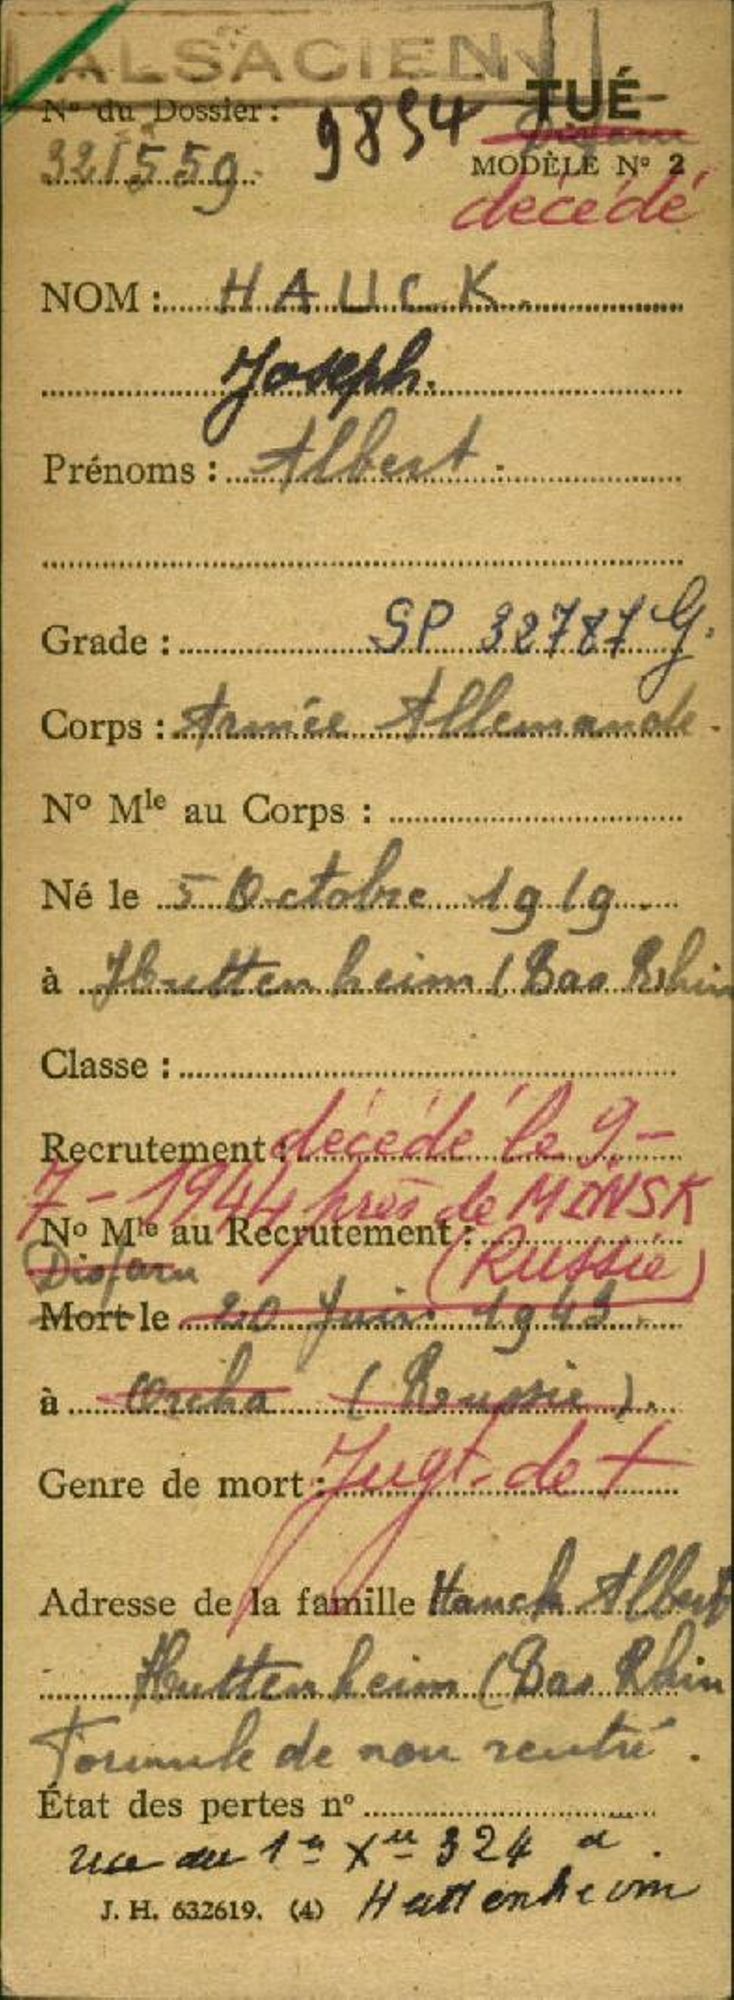 ALSACIEN
N° du Dossier : 9834 TUÉ
Disparu
321559. MODÈLE N° 2
décédé
NOM : HAUCK.
Joseph.
Prénoms : Albert.
Grade : SP 32787 G.
Corps : Armée Allemande.
N° Mle au Corps :
Né le 5 Octobre 1919.
à Huttenheim (Bas Rhin
Classe :
Recrutement : décédé le 9-
7-1944 près de MINSK
N° Mle au Recrutement :
(Russie)
Disparu
Mort le 20 Juin 1943.
à Orcha (Russie).
Genre de mort : Jugt. de +
Adresse de la famille Hauck Albert
Huttenheim (Bas Rhin
Formule de non rentré.
État des pertes n°
rue du 324 a
J. H. 632619. (4) Huttenheim